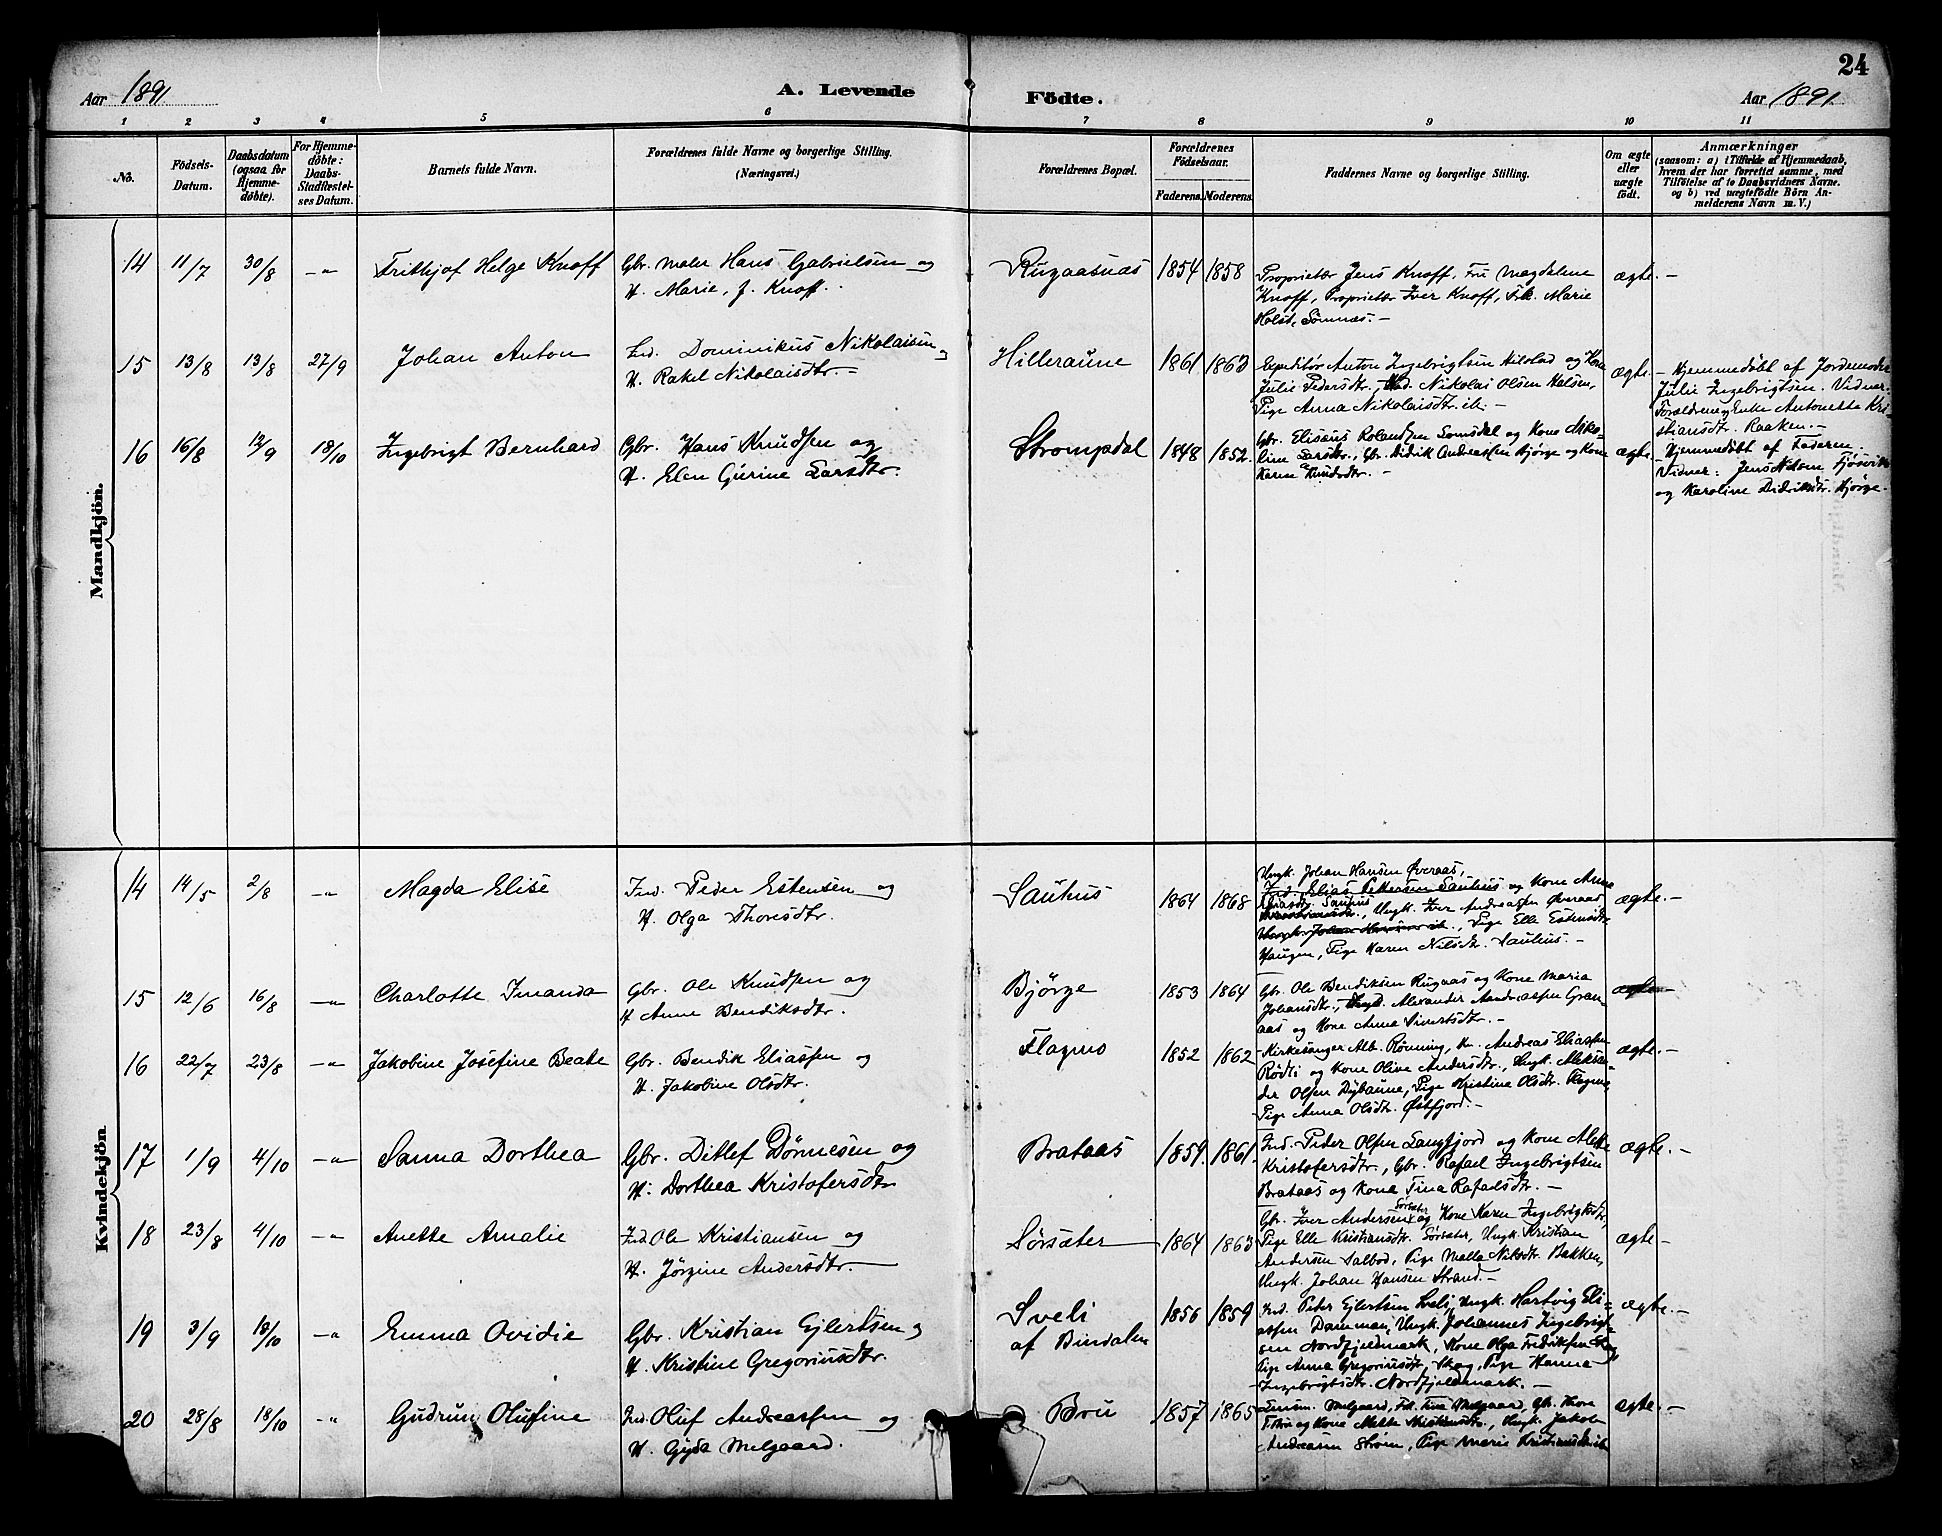 24
Aar 1891
A. Levende
Födte.
Aar 1891.
1 2 3 4 5 6 7 8 9 10 11
No.
Födsels-
Datum.
Daabsdatum
(ogsaa for
Hjemme-
döbte).
For Hjemme-
döbte:
Daabs-
Stadfæstel-
ses Datum.
Barnets fulde Navn.
Forældrenes fulde Navne og borgerlige Stilling.
(Næringsvei.)
Forældrenes Bopæl.
Forældrenes
Födselsaar.
Faderens. Moderens.
Faddernes Navne og borgerlige Stilling.
Om ægte
eller
uægte
födt.
Anmærkninger
(saasom: a) i Tilfælde af Hjemmedaab,
hvem der har forrettet samme, med
Tilföielse af to Daabsvidners Navne.
og b) ved uægtefödte Börn An-
melderens Navn m. V.)
Mandkjön.
14 11/7 30/8 -"- Frithjof Helge Knoff
Gbr. Maler Hans Gabrielsen og
H. Marie, J. Knoff.
Rugaasnæs 1854 1858
Proprietær Jens Knoff, Fru Magdalene
Knoff, Proprietær Iver Knoff, Frk. Marie
Holst, Sömnæs. -
ægte. -
15 13/8 13/8 27/9 Johan Anton
Ind. Dominikus Nikolaisen og
H. Rakel Nikolaisdtr. -
Hilleraune 1861 1863
Expeditör Anton Ingebrigtsen Hilstad og Kone
Julie Pedersdtr., Ind. Nikolai Olsen Halsen,
Pige Anna Nikolaisdtr. ib. -
ægte.
- Hjemmedöbt af Jordemoder
Julie Ingebrigtsen. Vidner:
Forældrene og Enke Antonette Kri-
stiansdtr. Raaken. -
16 16/8 12/9 18/10 Ingebrigt Bernhard
Gbr. Hans Knudsen og
H. Elen Gurine Larsdtr.
Strompdal 1848 1852.
Gbr. Elisæus Rolandsen Somsdal og Kone Niko-
line Larsdtr., Gbr. Didrik Andreassen Bjørge og Kone
Karen Knudsdtr. -
ægte.
- Hjemmedöbt af Faderen.
Vidner: Jens Nilsen Fjøsvik
og Karoline Didriksdtr. Bjørge.
Kvindekjön
14 14/5 2/8 -"- Magda Elise
Ind. Peder Estensen og
H. Olga Thoresdtr.
Sauhus 1864 1868
Ungk. Johan Hansen Øveraas,
Ind. Elias Pettersen Sauhus og Kone Anne
Eliasdtr. Sauhus, Ungk. Iver Andreassen Øveraas,
Pige Elle Estensdtr.
Haugen, Pige Karen Nilsdtr. Sauhus. -
ægte. -
15 12/6 16/8 -"- Charlotte Imanda
Gbr. Ole Knudsen og
H Anne Bendiksdtr.
Bjørge 1853 1864
Gbr. Ole Bendiksen Rugaas og Kone Maria
Johansdtr., Alexander Andreassen Gran-
aas og Kone Anna Sivertsdtr. -
ægte -
16 22/7 23/8 -"- Jakobine Josefine Beate
Gbr. Bendik Eliassen og
H. Jakobine Olsdtr.
Flagmo 1852 1862
Kirkesanger Alb. Rönning, K. Andreas Eliassen
Rödli og Kone Olive Andersdtr., Ungk. Aleksan-
der Olsen Dybaune, Pige Kristine Olsdtr. Flagmo,
Pige Anna Olsdtr. Østfjord. -
ægte. -
17 1/9 4/10 -"- Sanna Dorthea
Gbr. Ditlef Dönnesen og
H. Dorthea Kristofersdtr
Brataas 1859. 1861.
Ind. Peder Olsen Langfjord og Kone Alette
Kristofersdtr., Gbr. Rafael Ingebrigtsen
Brataas og Kone Tina Rafaelsdtr. -
ægte. -
18 23/8 4/10 -"- Anette Amalie
Ind. Ole Kristiansen og
H. Jörgine Andersdtr. -
Sørsæter 1864 1863
Gbr. Iver Andersen Sørsæter og Kone Karen Ingebrigtsdtr,
Pige Elle Kristiansdtr. Sørsæter, Ungk. Kristian
Andersen Salbod, Pige Malla Nilsdtr. Bakken,
Ungk. Johan Hansen Strand. -
ægte -
19 3/9 18/10 -"- Emma Ovidie
Gbr. Kristian Ejlertsen og
H. Kristine Gregoriusdtr.
Sveli
af Bindalen 1856 1859
Ind. Peter Ejlertsen Sveli, Ungk. Hartvig Eli-
assen Damman, Ungk. Johannes Ingebrigt-
sen Nordfjeldmark, Kone Olga Fredriksen Skog
Pige Anna Gregoriusdtr. Skog, Pige Hanna
Ingebrigtsdtr. Nordfjeldmark. -
ægte. -
20 28/8 18/10 -"- Gudrun Olufine
Ind. Oluf Andreassen og
H. Gyda Melgaard.
Bru 1857 1865
Melgaard, Frk. Tina Melgaard, Gbr. Thore
og Kone Mette Kristiansdtr., Ungk. Jakob
Andreassen Strøm, Pige Marie Kristiansdtr ib
ægte. -